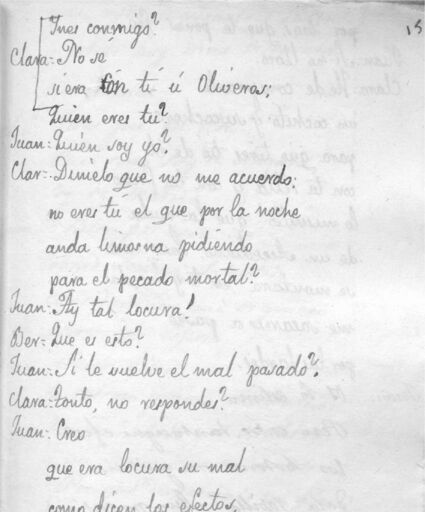 Ines conmigo?
15
Clara: No sé
si era con tú ú Oliveras;
Quién eres tú?
Juan: Quién soy yo?
Clar: Dimelo que no me acuerdo;
no eres tú el que por la noche
anda limosna pidiendo
para el pecado mortal?
Juan: Ay tal locura!
Ber: Que es esto?
Juan: Si le vuelve el mal pasado?
Clara: tonto, no respondes?
Juan: Creo
que era locura su mal
como dicen los efectos,